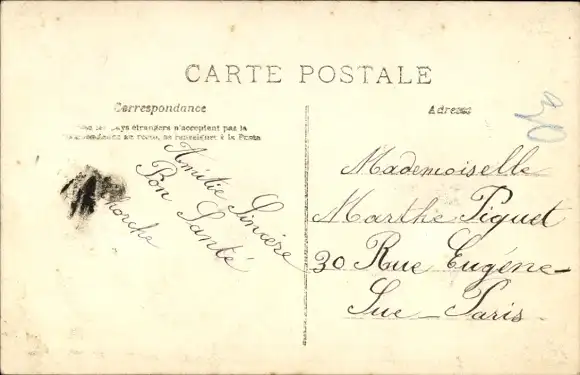 CARTE POSTALE
Correspondance
Adresse
pays étrangers n'acceptent pas la
au recto, se renseigner à la Poste
Amitié Sincère
Bon Santé
Mademoiselle
Marthe Piguet
30 Rue Eugène-
Sue - Paris